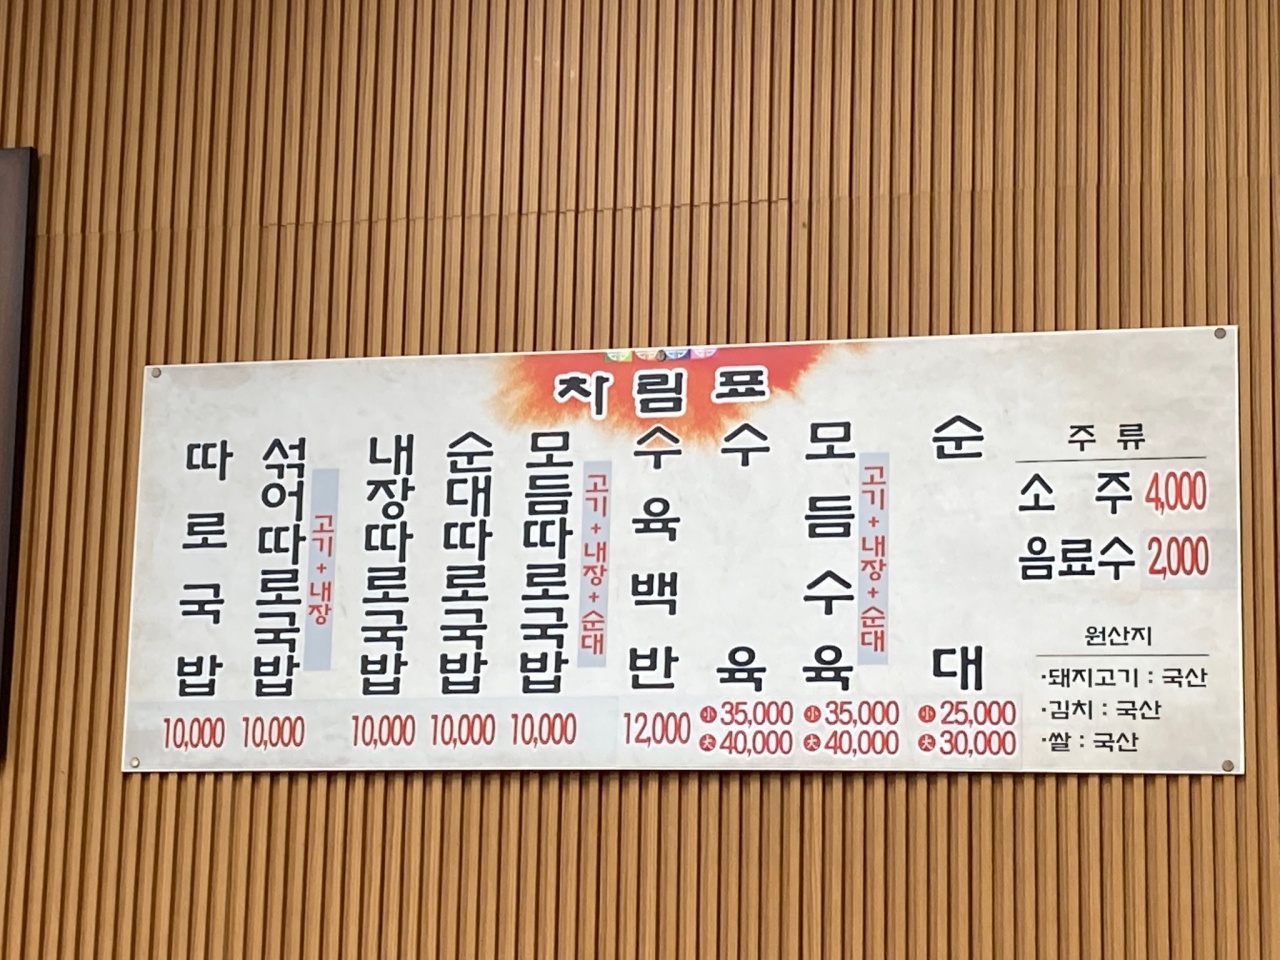 차림표
따로국밥
10,000
섞어따로국밥
고기+내장
10,000
내장따로국밥
10,000
순대따로국밥
10,000
모듬따로국밥
고기+내장+순대
10,000
수육백반
12,000
수육
小 35,000
大 40,000
모듬수육
고기+내장+순대
小 35,000
大 40,000
순대
小 25,000
大 30,000
주류
소주 4,000
음료수 2,000
원산지
·돼지고기 : 국산
·김치 : 국산
·쌀 : 국산